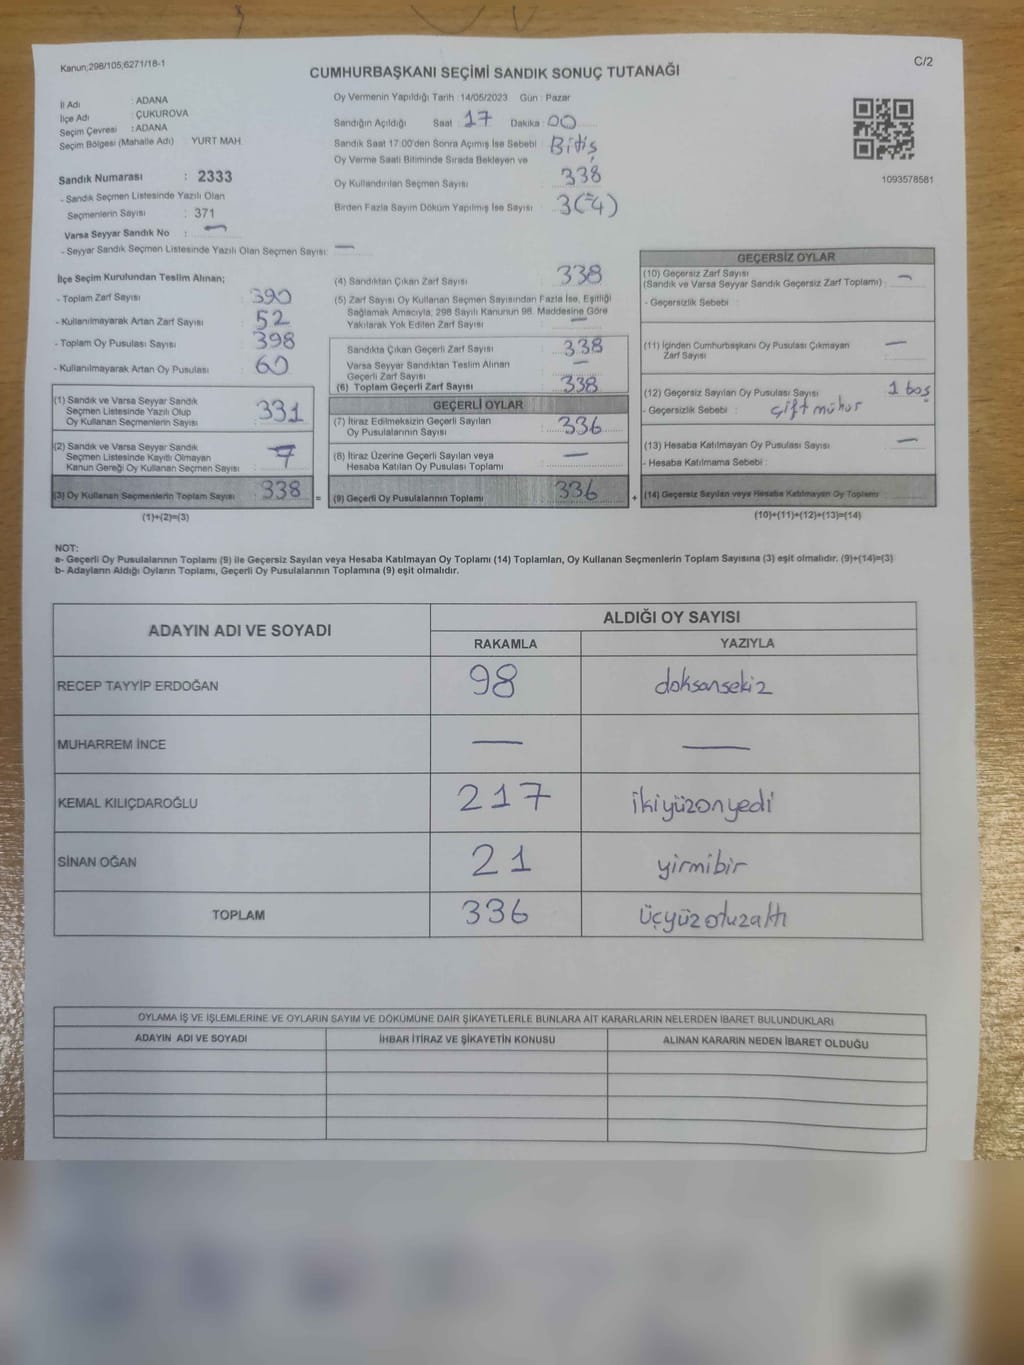 Kanun;298/105;6271/18-1
C/2
CUMHURBAŞKANI SEÇİMİ SANDIK SONUÇ TUTANAĞI
İl Adı : ADANA
İlçe Adı : ÇUKUROVA
Seçim Çevresi : ADANA
Seçim Bölgesi (Mahalle Adı) YURT MAH
Sandık Numarası : 2333
- Sandık Seçmen Listesinde Yazılı Olan
Seçmenlerin Sayısı : 371
Varsa Seyyar Sandık No : —
- Seyyar Sandık Seçmen Listesinde Yazılı Olan Seçmen Sayısı: —
Oy Vermenin Yapıldığı Tarih : 14/05/2023 Gün : Pazar
Sandığın Açıldığı Saat : 17 Dakika : 00
Sandık Saat 17:00'den Sonra Açımış İse Sebebi : Bitiş
Oy Verme Saati Bitiminde Sırada Bekleyen ve
Oy Kullandırılan Seçmen Sayısı : 338
Birden Fazla Sayım Döküm Yapılmış İse Sayısı : 3(=4)
1093578581
İlçe Seçim Kurulundan Teslim Alınan;
- Toplam Zarf Sayısı : 390
- Kullanılmayarak Artan Zarf Sayısı : 52
- Toplam Oy Pusulası Sayısı : 398
- Kullanılmayarak Artan Oy Pusulası : 60
(1) Sandık ve Varsa Seyyar Sandık
Seçmen Listesinde Yazılı Olup
Oy Kullanan Seçmenlerin Sayısı : 331
(2) Sandık ve Varsa Seyyar Sandık
Seçmen Listesinde Kayıtlı Olmayan
Kanun Gereği Oy Kullanan Seçmen Sayısı : 7
(3) Oy Kullanan Seçmenlerin Toplam Sayısı : 338
(1)+(2)=(3)
(4) Sandıktan Çıkan Zarf Sayısı : 338
(5) Zarf Sayısı Oy Kullanan Seçmen Sayısından Fazla İse, Eşitliği
Sağlamak Amacıyla, 298 Sayılı Kanunun 98. Maddesine Göre
Yakılarak Yok Edilen Zarf Sayısı : —
Sandıkta Çıkan Geçerli Zarf Sayısı : 338
Varsa Seyyar Sandıktan Teslim Alınan
Geçerli Zarf Sayısı : —
(6) Toplam Geçerli Zarf Sayısı : 338
GEÇERLİ OYLAR
(7) İtiraz Edilmeksizin Geçerli Sayılan
Oy Pusulalarının Sayısı : 336
(8) İtiraz Üzerine Geçerli Sayılan veya
Hesaba Katılan Oy Pusulası Toplamı : —
= (9) Geçerli Oy Pusulalarının Toplamı : 336 +
GEÇERSİZ OYLAR
(10) Geçersiz Zarf Sayısı
(Sandık ve Varsa Seyyar Sandık Geçersiz Zarf Toplamı) : —
- Geçersizlik Sebebi :
(11) İçinden Cumhurbaşkanı Oy Pusulası Çıkmayan
Zarf Sayısı : —
(12) Geçersiz Sayılan Oy Pusulası Sayısı : 1 boş
- Geçersizlik Sebebi : çift mühür
(13) Hesaba Katılmayan Oy Pusulası Sayısı : —
- Hesaba Katılmama Sebebi :
(14) Geçersiz Sayılan veya Hesaba Katılmayan Oy Toplamı :
(10)+(11)+(12)+(13)=(14)
NOT:
a- Geçerli Oy Pusulalarının Toplamı (9) ile Geçersiz Sayılan veya Hesaba Katılmayan Oy Toplamı (14) Toplamları, Oy Kullanan Seçmenlerin Toplam Sayısına (3) eşit olmalıdır. (9)+(14)=(3)
b- Adayların Aldığı Oyların Toplamı, Geçerli Oy Pusulalarının Toplamına (9) eşit olmalıdır.
ADAYIN ADI VE SOYADI
ALDIĞI OY SAYISI
RAKAMLA YAZIYLA
RECEP TAYYİP ERDOĞAN 98 doksansekiz
MUHARREM İNCE — —
KEMAL KILIÇDAROĞLU 217 ikiyüzonyedi
SİNAN OĞAN 21 yirmibir
TOPLAM 336 üçyüzotuzaltı
OYLAMA İŞ VE İŞLEMLERİNE VE OYLARIN SAYIM VE DÖKÜMÜNE DAİR ŞİKAYETLERLE BUNLARA AİT KARARLARIN NELERDEN İBARET BULUNDUKLARI
ADAYIN ADI VE SOYADI İHBAR İTİRAZ VE ŞİKAYETİN KONUSU ALINAN KARARIN NEDEN İBARET OLDUĞU